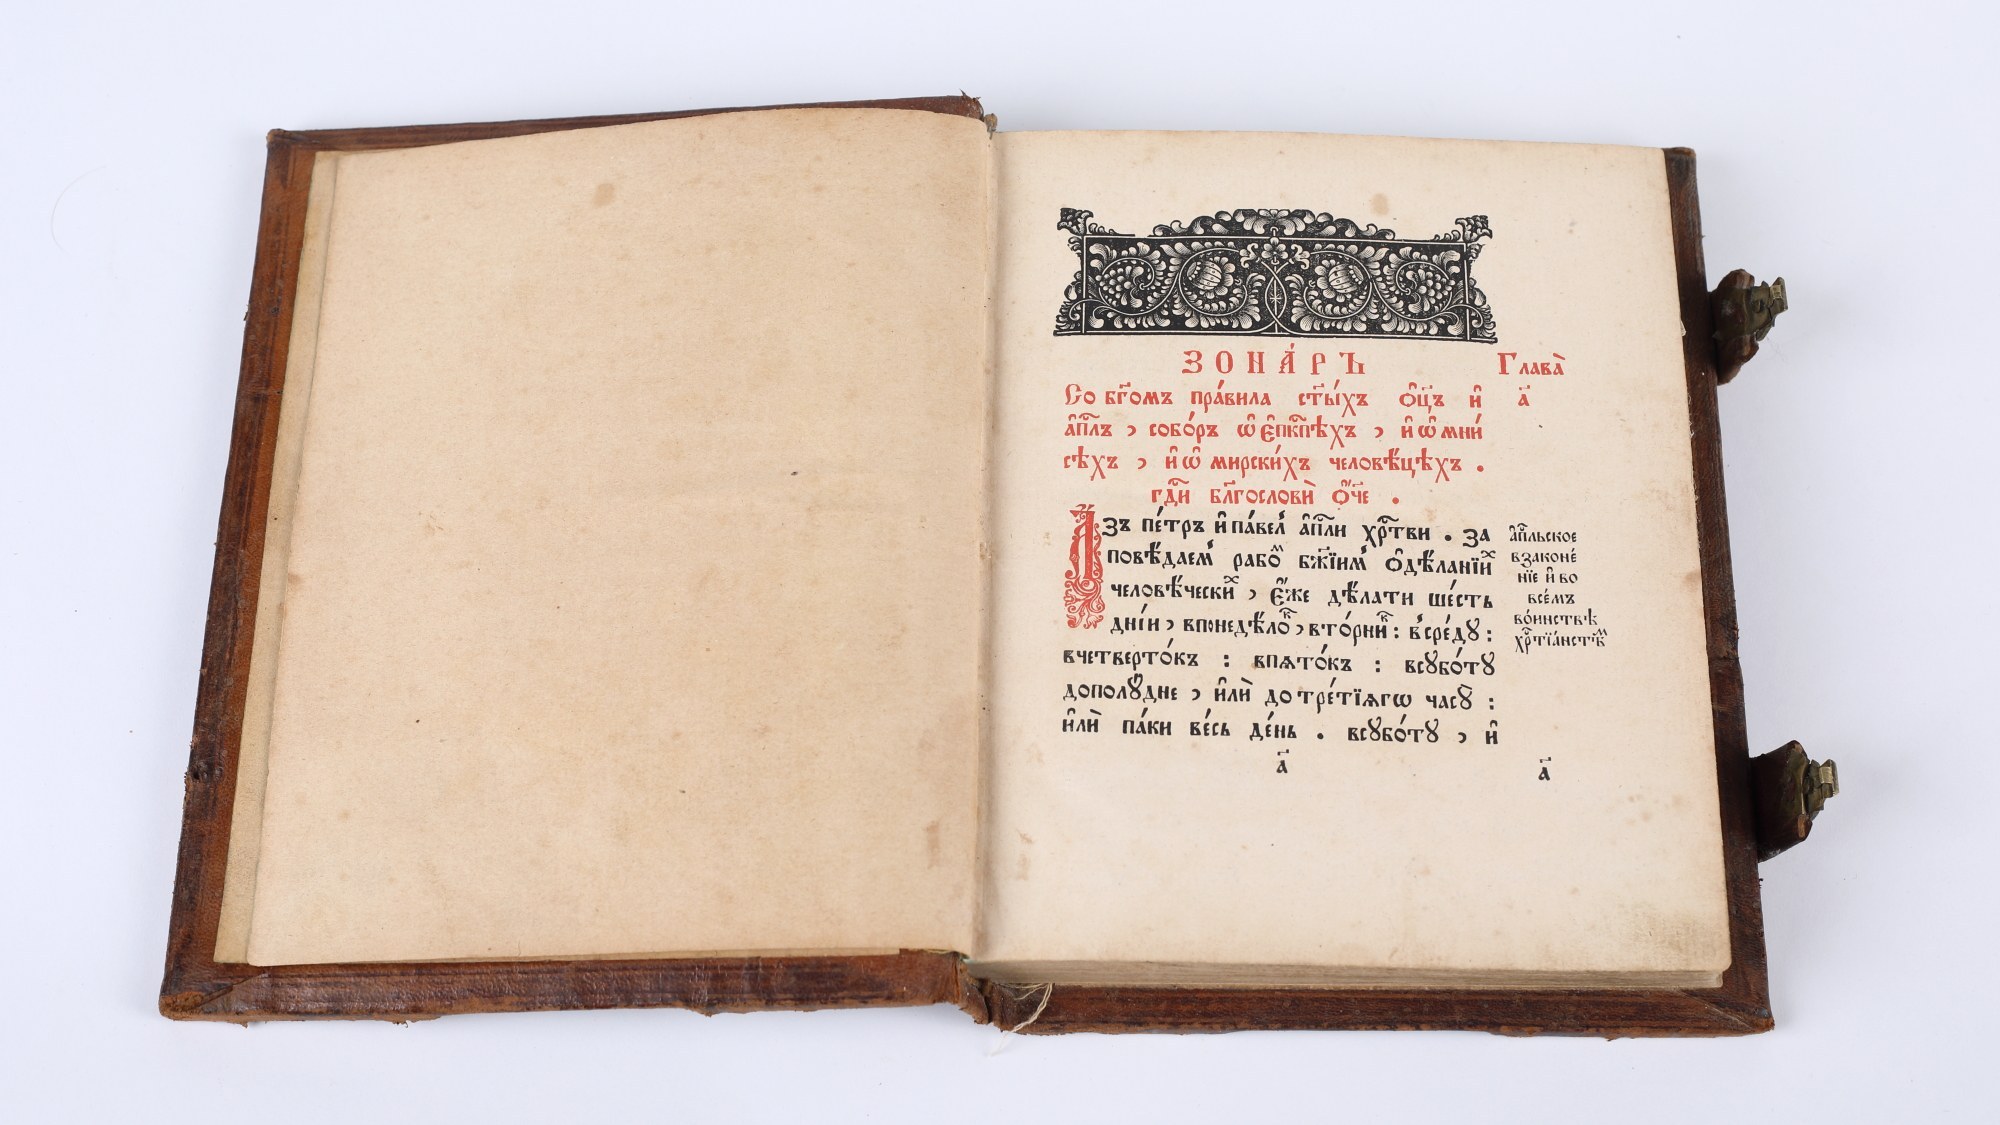 ЗОНА́РЪ
Глава̀
а҃
Со бг҃омъ пра́вила ст҃ы́хъ ѻ҆ц҃ъ и҆
а҆пⷭ҇лъ , собо́ръ ѡ҆ є҆пкⷭ҇пѣхъ , и҆ ѡ҆ мни́
сѣхъ , и҆ ѡ҆ мирски́хъ человѣ́цѣхъ .
гдⷭ҇и бл҃гослови̑ ѻ҆́ч҃е .
Азъ пе́тръ и҆ па́вел̾ а҆пⷭ҇ли хрⷭ҇тви . За
повѣ́даем̾ рабѡⷨ бж҃їим̾ ѻ҆дѣ́ланїиⷯ
человѣ́ческиⷯ , є҆́же дѣ́лати ше́сть
дні́и , впонедѣ́лоⷦ , вто́рниⷦ : в̾сре́дꙋ :
вчетверто́къ : впѧто́къ : всꙋбо́тꙋ
дополꙋ́дне , и҆лѝ до тре́тїѧгѡ часꙋ̀ :
и҆лѝ па́ки ве́сь де́нь . всꙋбо́тꙋ , и҆
а҆пⷭ҇льское
взаконе́
нїе и҆ во
все́мъ
во́инствѣ
хрⷭ҇тїа́нстѣⷨ
а҃
а҃